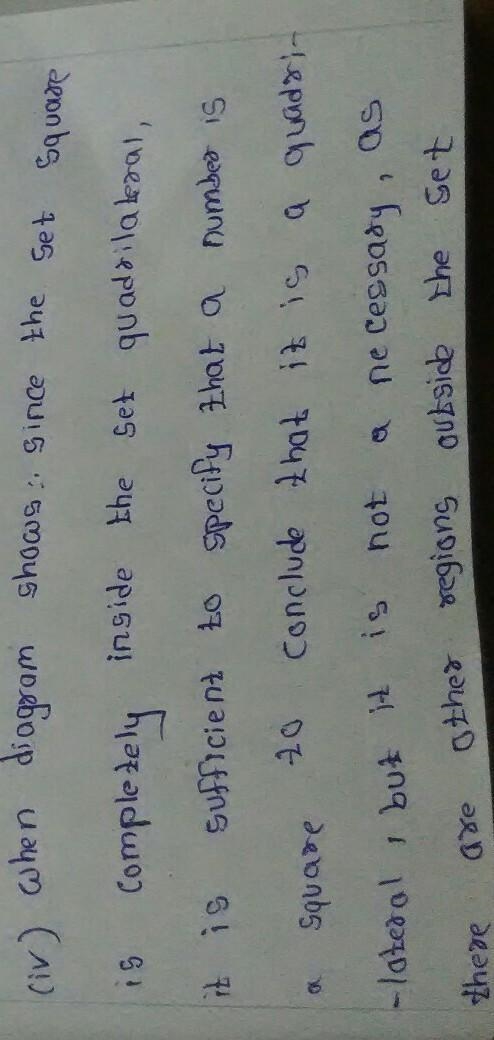 (iv) when diagram shows : since the set square
is completely inside the set quadrilateral,
it is sufficient to specify that a number is
a square to conclude that it is a quadri-
-lateral, but it is not a necessary, as
there are other regions outside the set